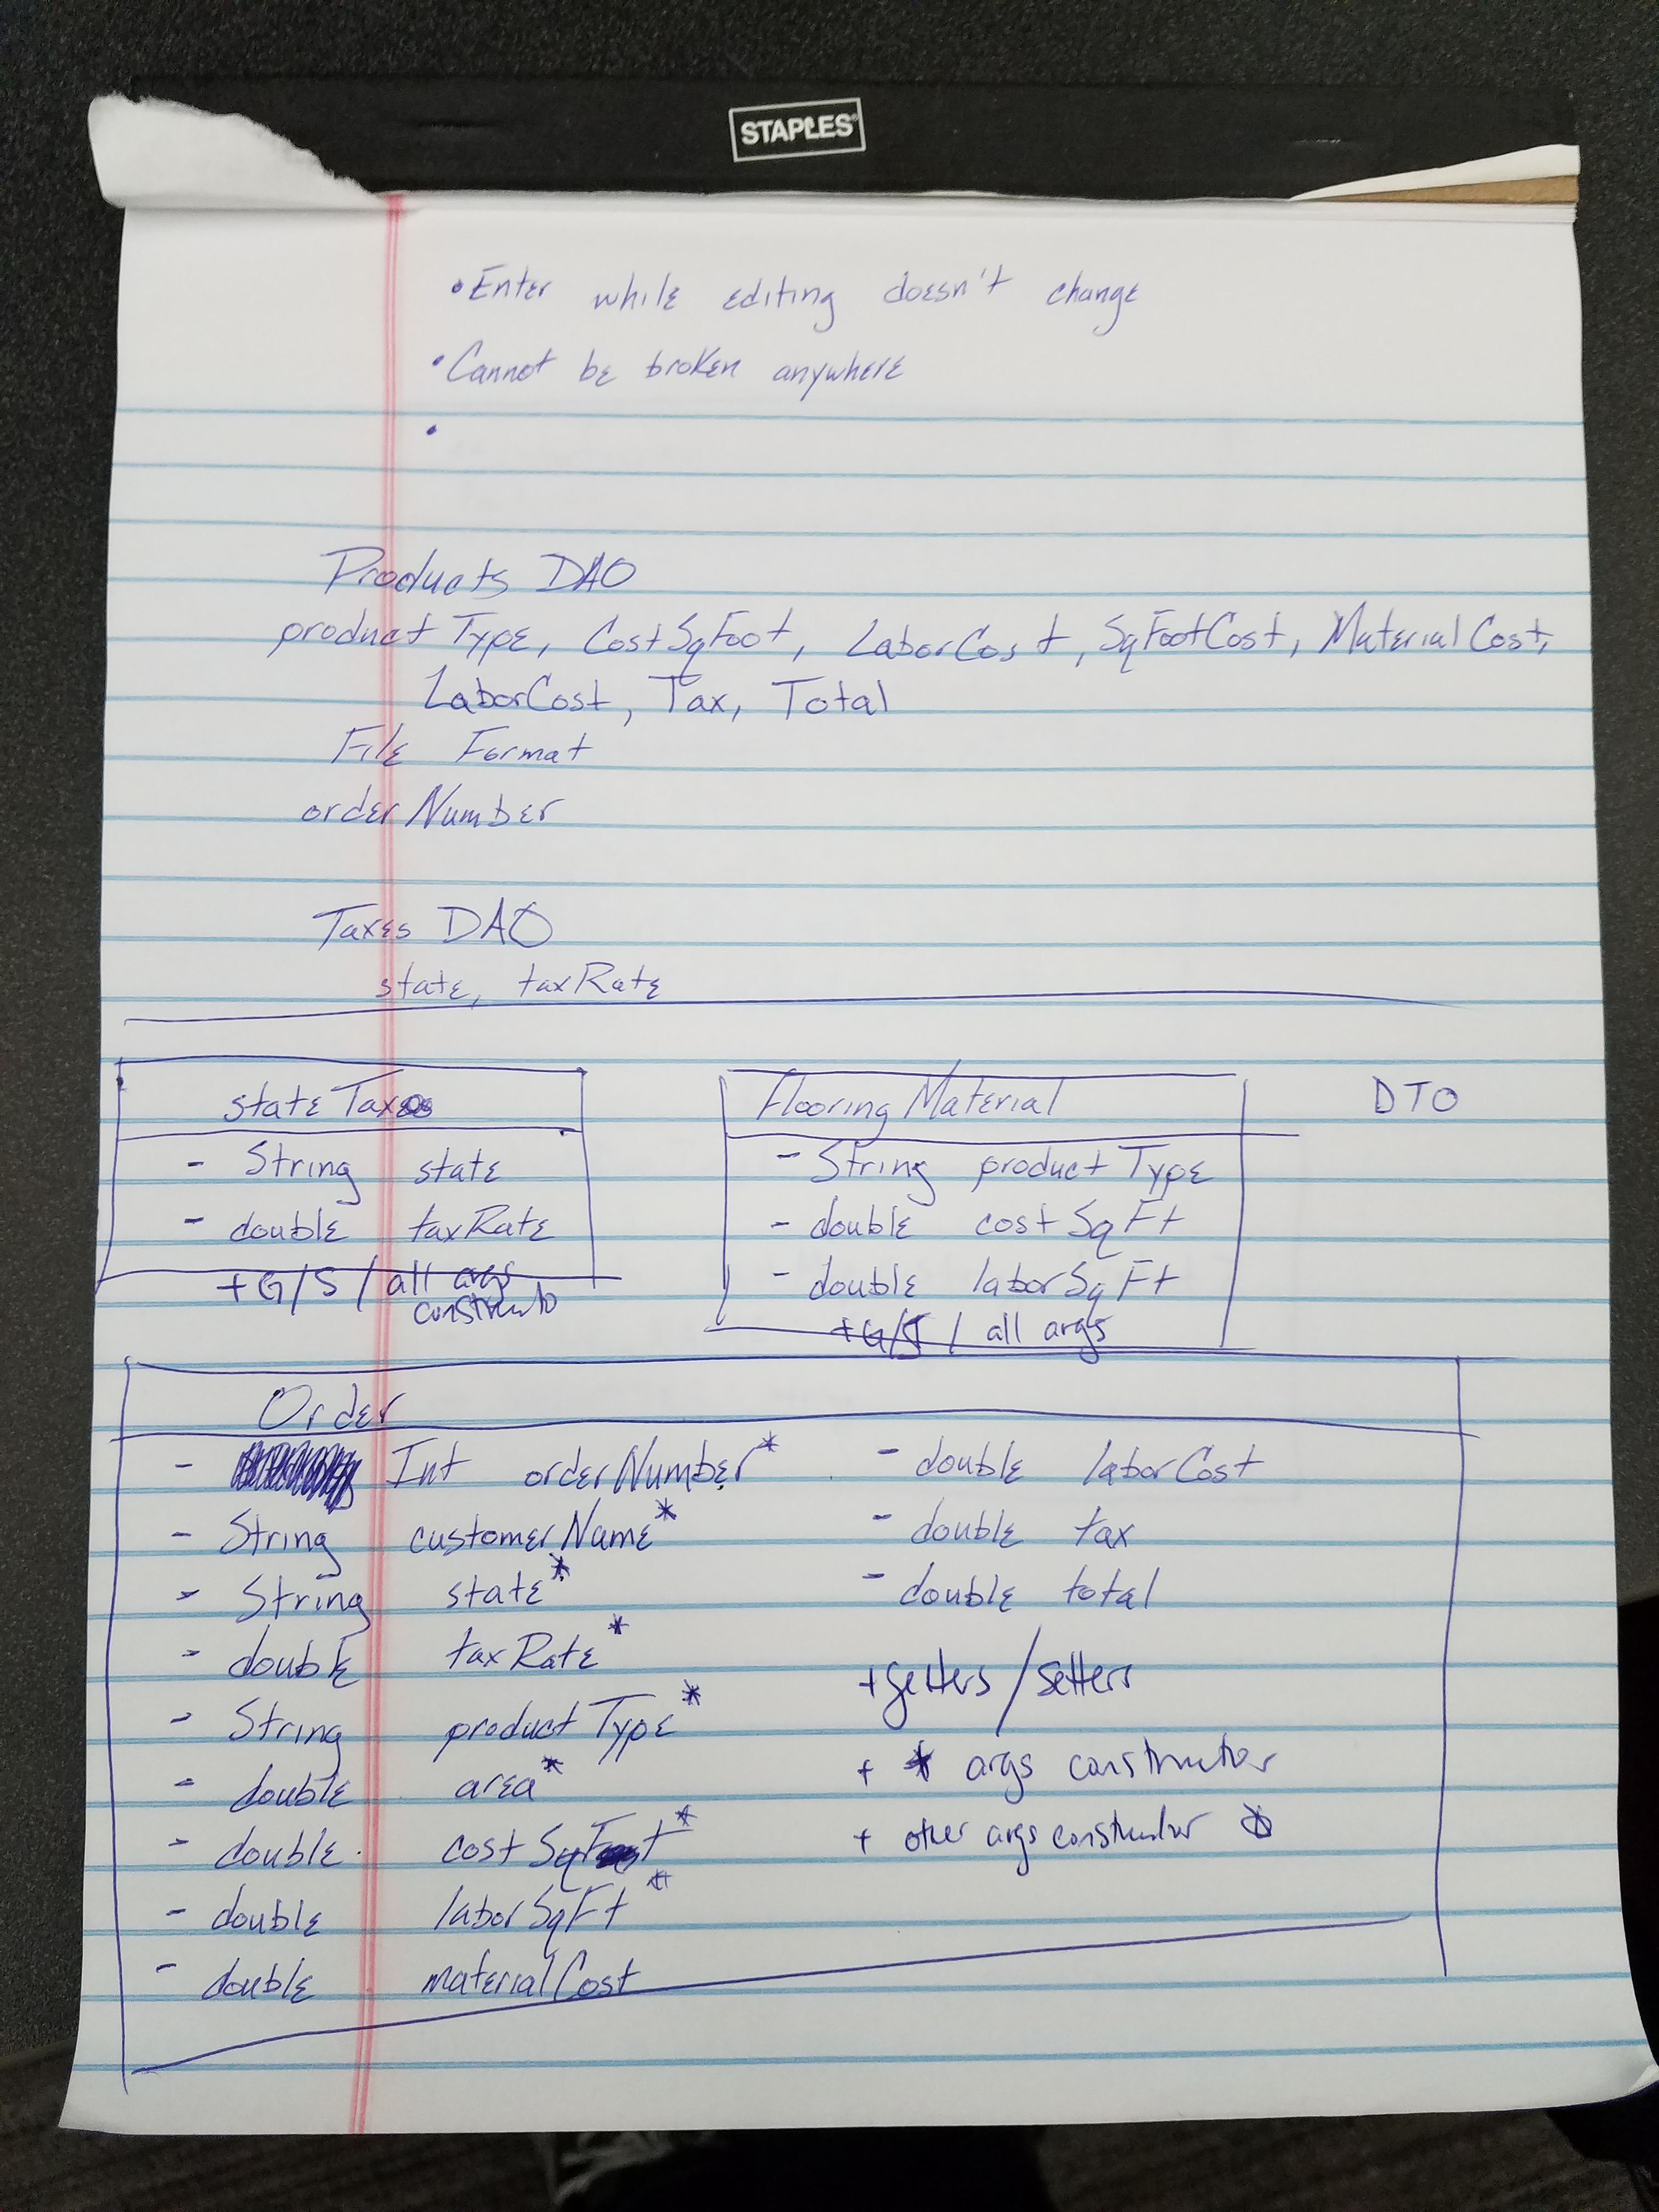 STAPLES
• Enter while editing doesn't change
• Cannot be broken anywhere
•
Products DAO
productType, CostSqFoot, LaborCost, SqFootCost, MaterialCost,
LaborCost, Tax, Total
File Format
orderNumber
Taxes DAO
state, taxRate
stateTax
- String state
- double taxRate
+ G/S / all args
Flooring Material
- String productType
- double costSqFt
- double laborSqFt
+ G/S / all args
DTO
Order
- Int orderNumber*
- String customerName*
- String state*
- double taxRate*
- String productType*
- double area*
- double costSqFt*
- double laborSqFt*
- double materialCost
- double laborCost
- double tax
- double total
+ getters/setters
+ * args constructor
+ other args constructor